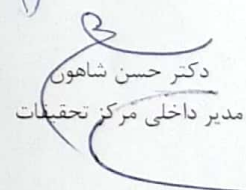 دکتر حسن شاهون
مدیر داخلی مرکز تحقیقات